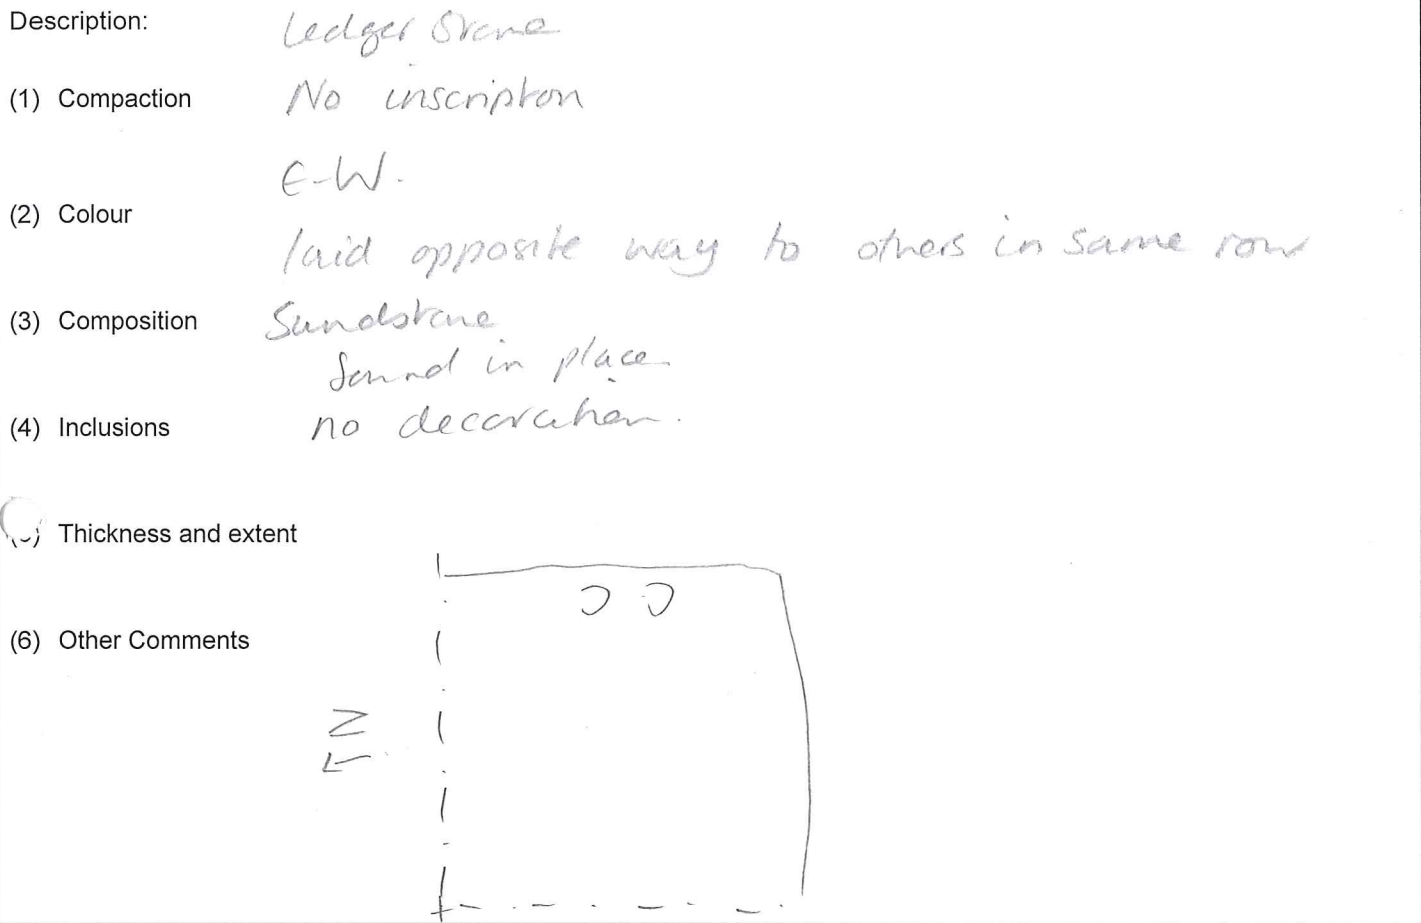 Description:
Ledger Stone
(1) Compaction
No inscription
E-W.
(2) Colour
laid opposite way to others in same row
(3) Composition
Sandstone
Sound in place
(4) Inclusions
no decoration.
Thickness and extent
(6) Other Comments
N